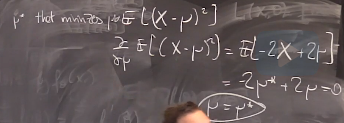 μ* that minimizes μ E[(X-μ)²]
∂/∂μ E[(X-μ)²] = E[-2X + 2μ]
= -2μ* + 2μ = 0
μ = μ*